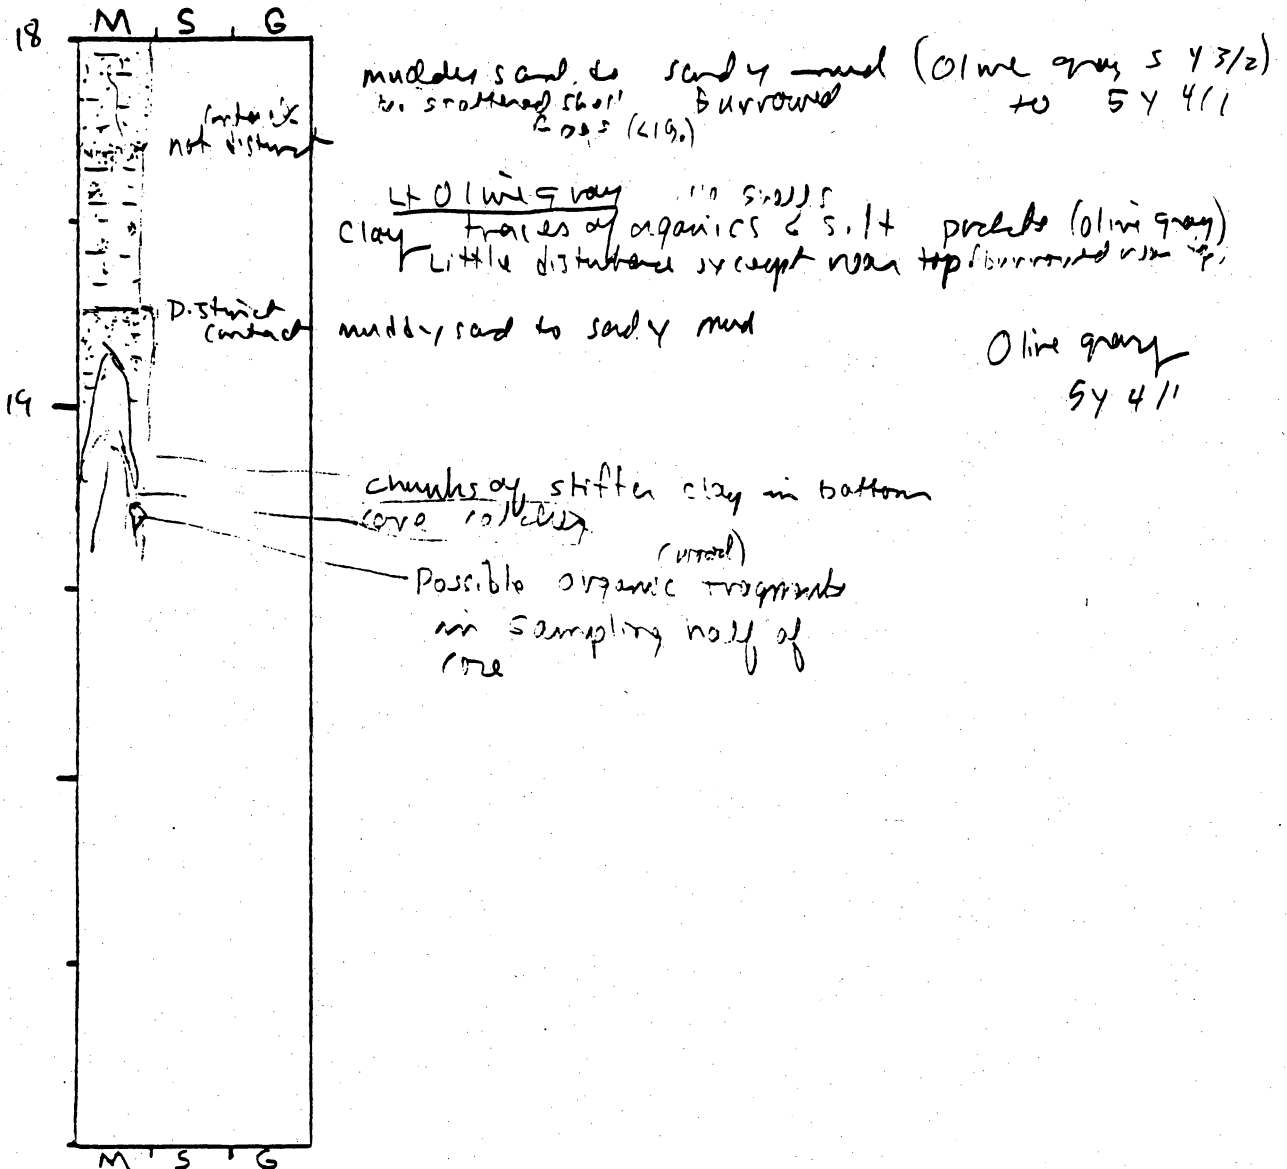 M S G
18
muddy sand to sandy mud (Olive gray 5 Y 3/2)
scattered shell Burrowed to 5 Y 4/1
not disturbed
Lt Olive gray no shells
clay traces of organics & silt pockets (olive gray)
Little disturbance except near top
Distinct
contact muddy sand to sandy mud
Olive gray
19
5Y 4/1
chunks of stiffer clay in bottom
core
(wood)
Possible organic fragments
in sampling half of
core
M S G